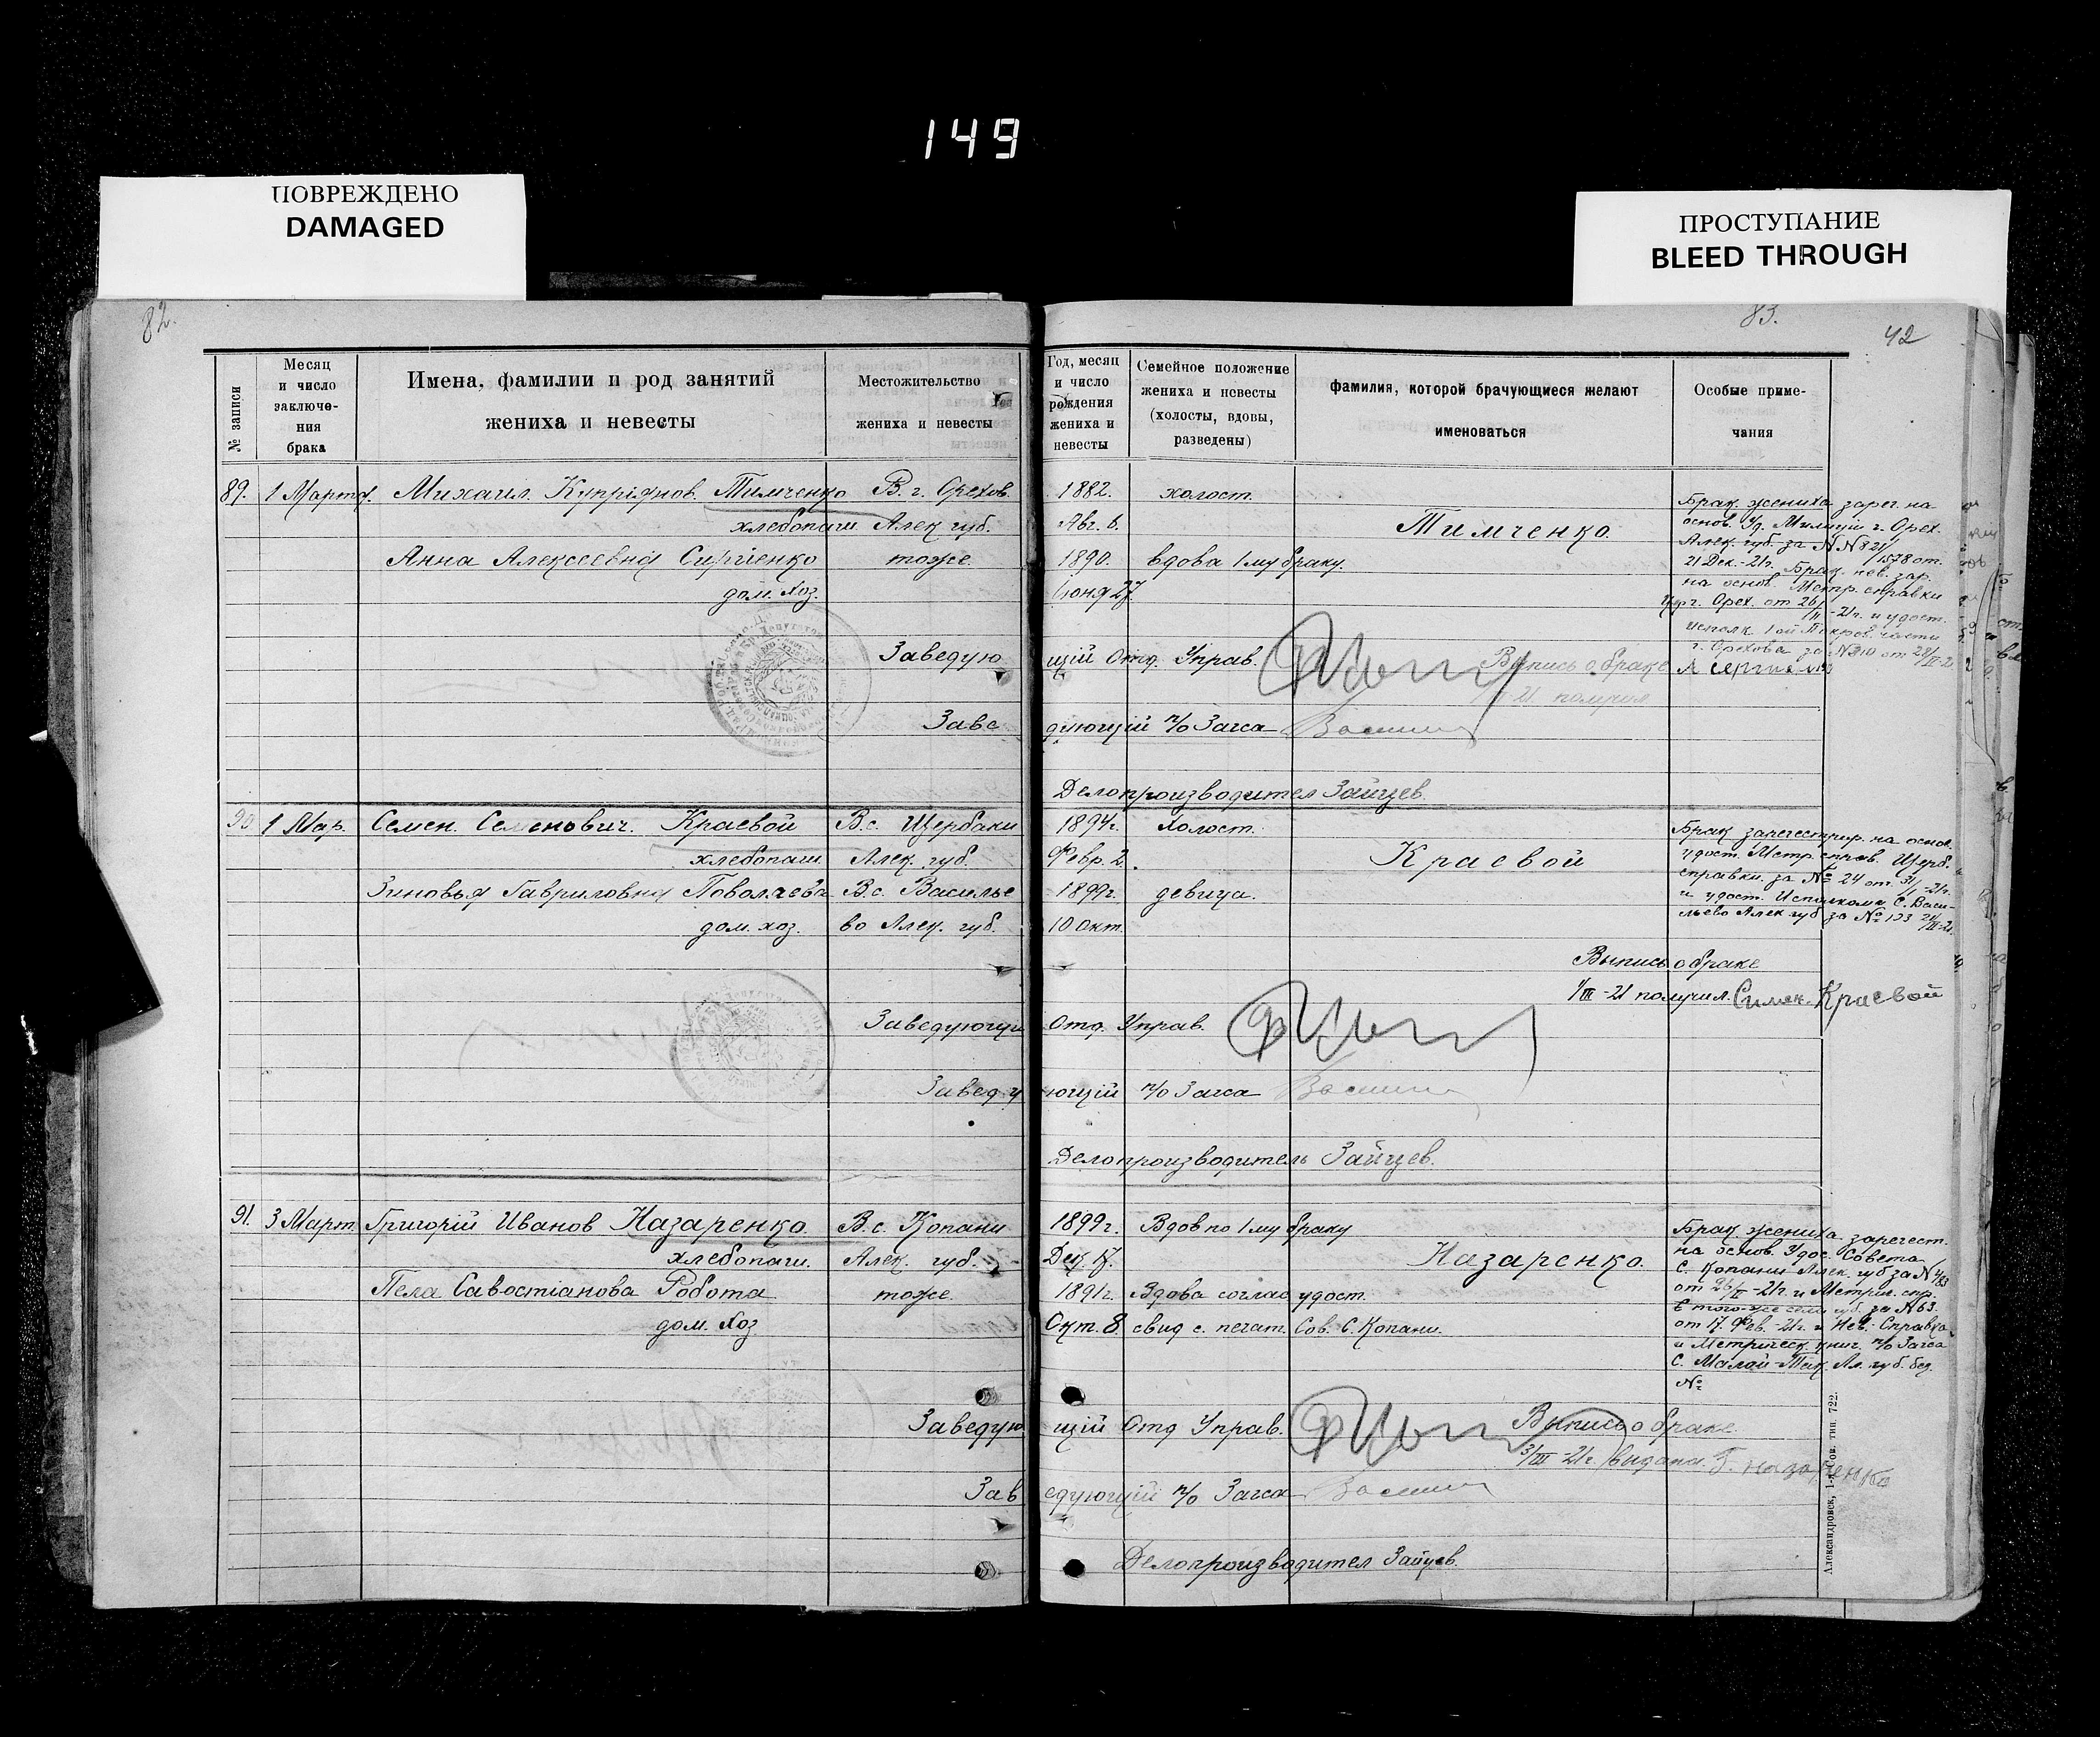 149
ПОВРЕЖДЕНО
DAMAGED
ПРОСТУПАНИЕ
BLEED THROUGH
82.
83.
42
№ записи
Месяц
и число
заключе-
ния
брака
Имена, фамилии и род занятий
жениха и невесты
Местожительство
жениха и невесты
Год, месяц
и число
рождения
жениха и
невесты
Семейное положение
жениха и невесты
(холосты, вдовы,
разведены)
фамилия, которой брачующиеся желают
именоваться
Особые приме-
чания
89. 1 Марта. Михаил. Купріянов. Тимченко В. г. Орехов. 1882. холост.
хлебопаш. Алек губ. Авг. 6. Тимченко.
Анна Алексеевна Сиргіенко тоже. 1890. вдова 1 му браку.
дом. хоз. Іюня 27.
Брак. жениха зарег. на
основ. Уд. Милиціи г. Орех.
Алек. губ. за N N 821/
1578 от.
21 Дек.-21г. Брак. нев. зар.
на основ. Метр. справки
г. Орех. от 26/II-21г. и удост.
исполк. 1 ой Покров. части
г. Орехова за N310 от 28/II-2
Заведую щій Отд. Управ. Выпись о браке
21 получил
Заве дующій п/о Загса
Делопроизводител Зайцев.
90 1 Мар. Семен. Семенович. Краевой В с. Щербаки 1894г. Холост.
хлебопаш. Алек. губ. Февр. 2. Краевой
Зиновья Гавриловна Поволяева В с. Василье 1899г. девица.
дом. хоз. во Алек. губ. 10 Окт.
Брак зарегестрир. на основ.
удост. Метр. справ. Щерб.
справки. за № 24 от 31/I-21г.
и удост. Исполкома С. Васи-
льево Алек губ за № 123 21/II-21.
Выпись о браке
1/III-21 получил. Симен. Краевой
Заведующи Отд. Управ.
Заведу ющій п/о Загса
Делопроизводитель Зайцев.
91. 3 Март. Григорій Иванов Назаренко. В с. Копани 1899г. Вдов по 1 му браку
хлебопаш. Алек. губ. Дек. 17. Назаренко.
Пела Савостіанова Робота тоже. 1891г. Вдова соглас удост.
дом. Хоз. Окт. 8. свид с. печат. Сов. С. Копани.
Брак. жениха зарегест.
на основ. Удос. Совета
С. Копани Алек губ за N 483
от 26/II-21г. и Метрич. спр.
того-же села губ. за N 63.
от 17. Фев.-21г. и Нев. Справка
и Метрическ. книг. п/о Загса
С. Малой-Ток. Ал. губ. без.
№
Заведую щій Отд Управ. Выпись о браке.
3/III-21г. выдана. Г. назаренко
Зав едующій п/о Загса
Делопроизводител Зайцев.
Александровск, 1-я Сов. тип. 722.